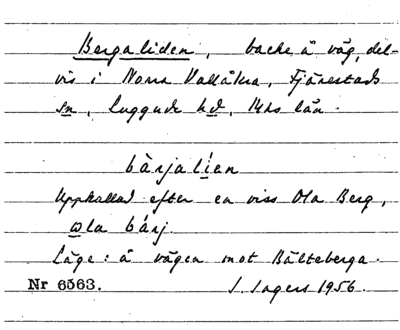 Bergaliden, backe å väg, del-
vis i Norra Vallåkra, Fjärestads
sn, Luggude hd, Mhs län.
bàrjalíen
Uppkallad efter en viss Ola Berg,
ωla bárj.
Läge: å vägen mot Bälteberga.
Nr 6563. S. Ingers 1956.